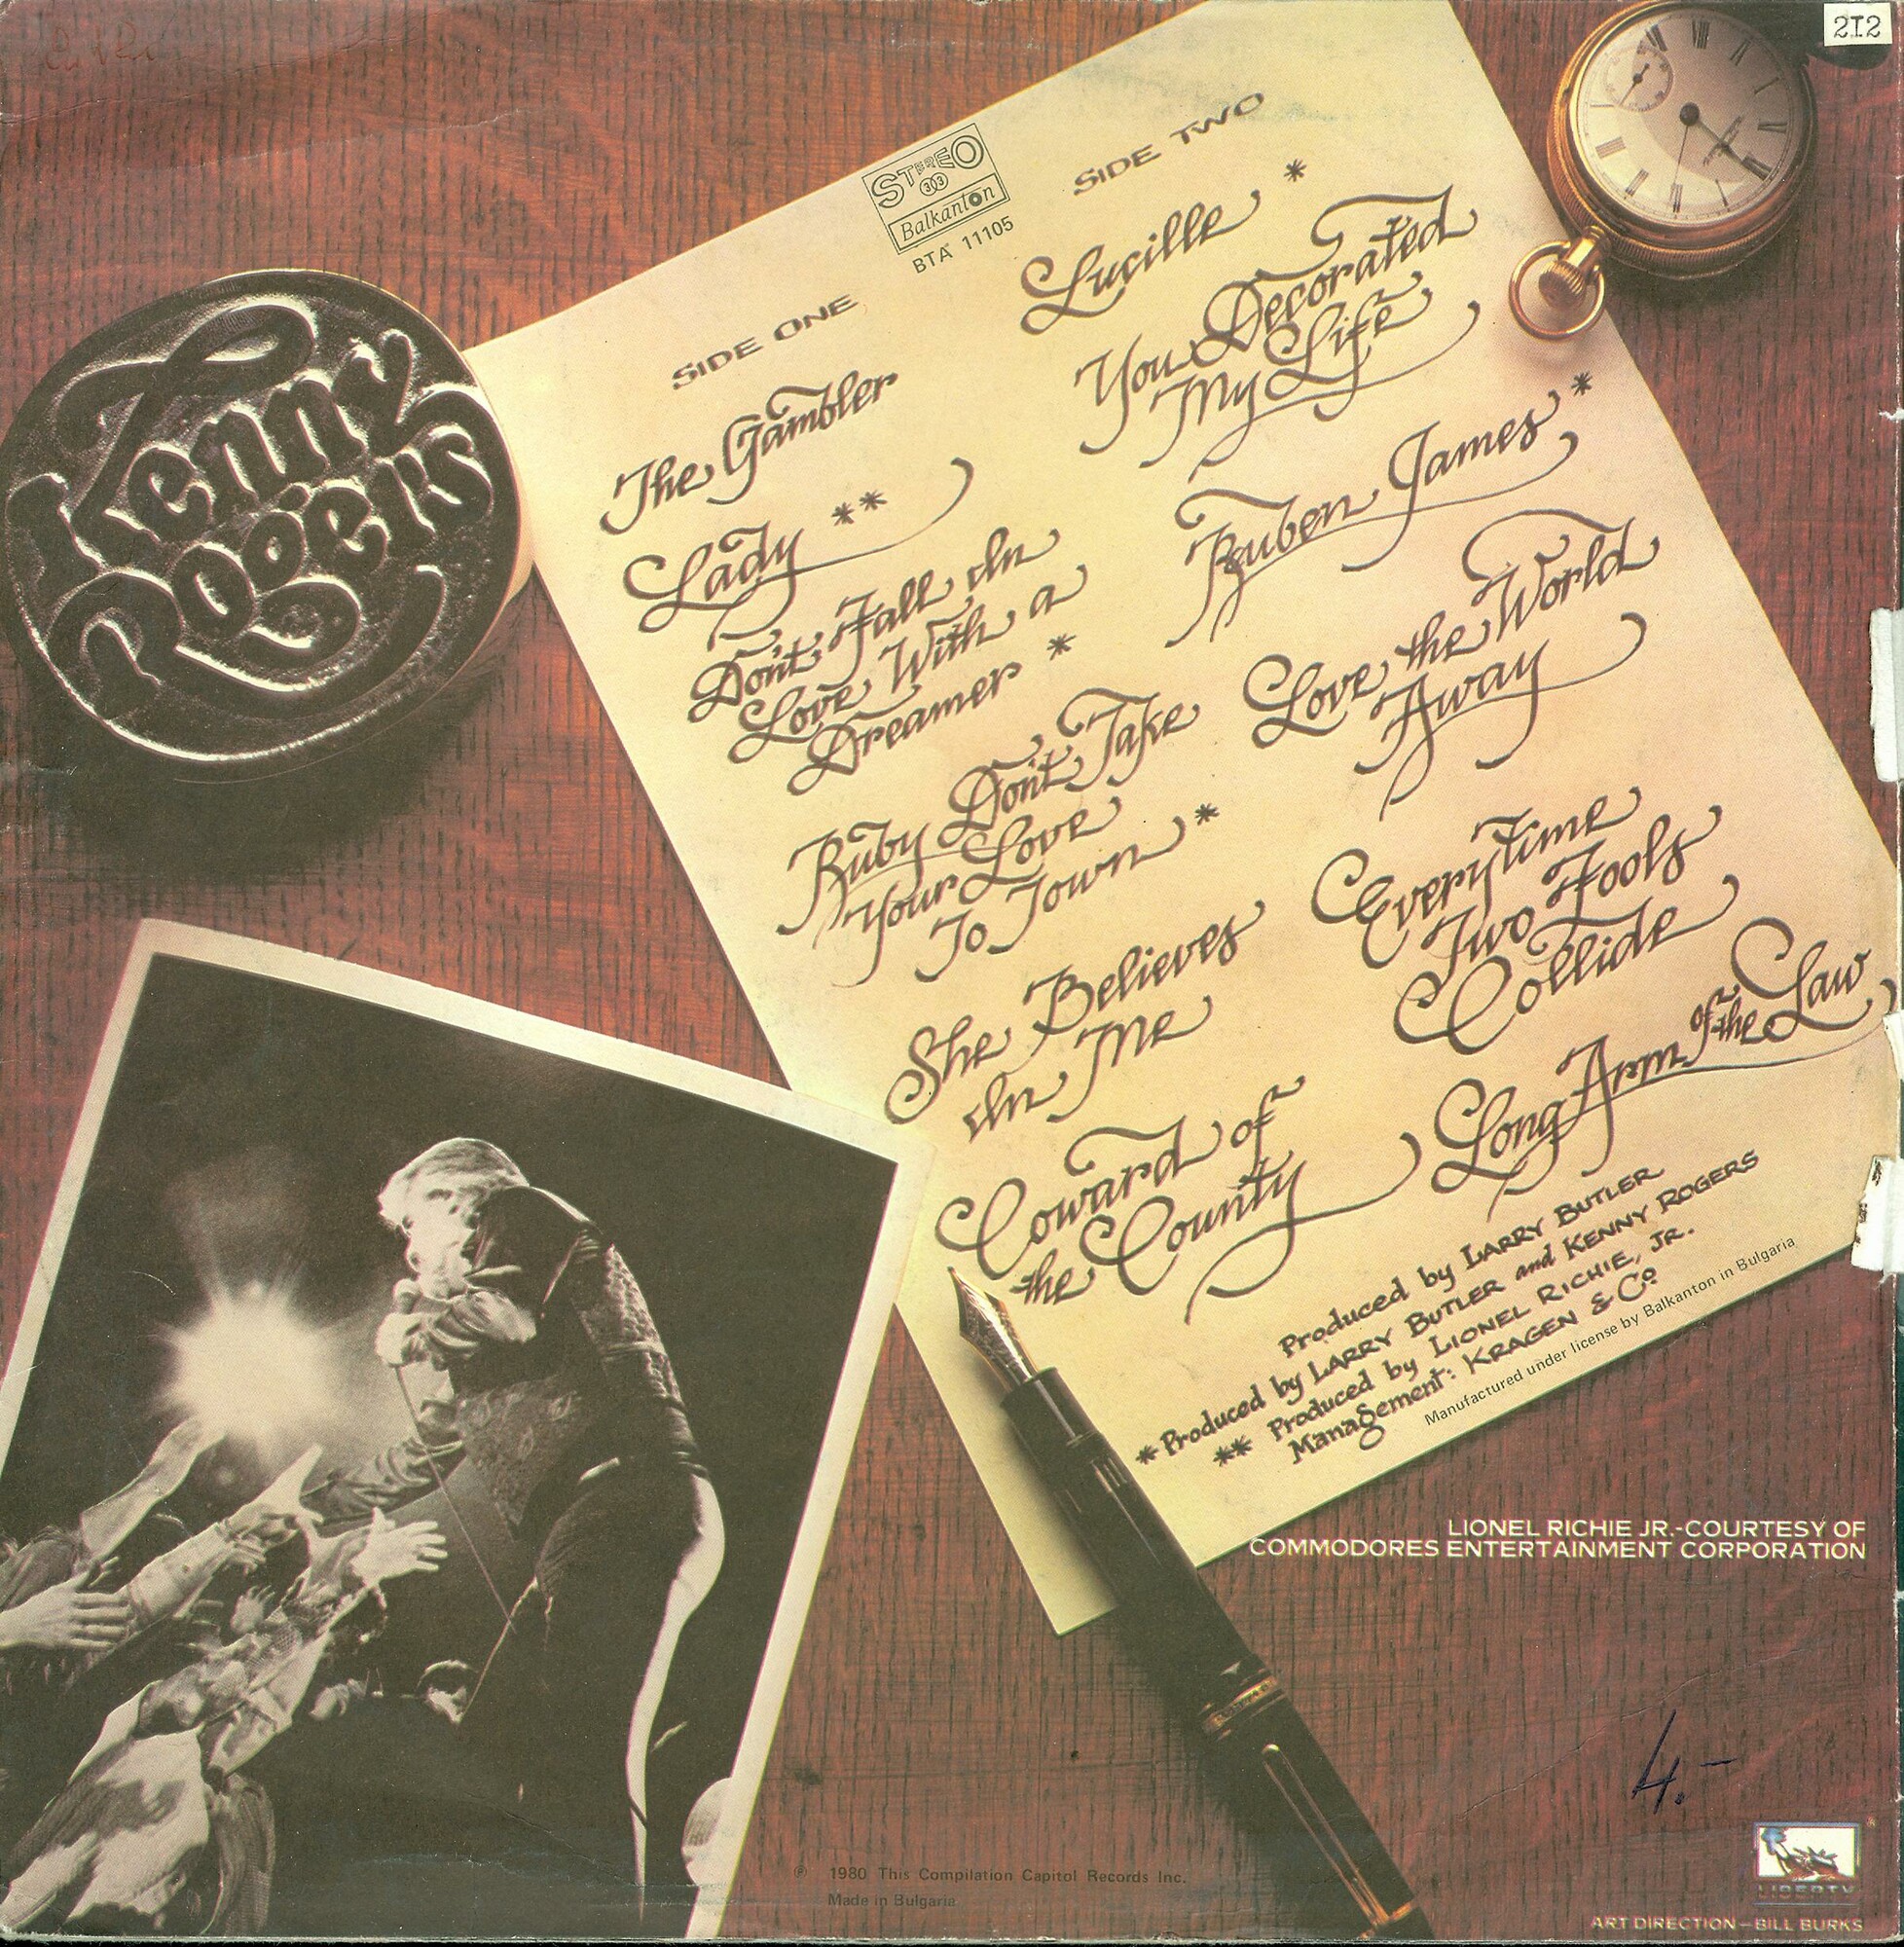 212
Kenny
Rogers
STEREO
33
Balkanton
BTA 11105
SIDE ONE
The Gambler
Lady **
Don't Fall In
Love With a
Dreamer *
Ruby Don't Take
Your Love
To Town *
She Believes
In Me
Coward of
the County
SIDE TWO
Lucille *
You Decorated
My Life
Ruben James *
Love the World
Away
Everytime
Two Fools
Collide
Long Arm of the Law
Produced by LARRY BUTLER
* Produced by LARRY BUTLER and KENNY ROGERS
** Produced by LIONEL RICHIE, JR.
Management: KRAGEN & Co
Manufactured under license by Balkanton in Bulgaria
LIONEL RICHIE JR.-COURTESY OF
COMMODORES ENTERTAINMENT CORPORATION
4.-
℗ 1980 This Compilation Capitol Records Inc.
Made in Bulgaria
LIBERTY
®
ART DIRECTION—BILL BURKS